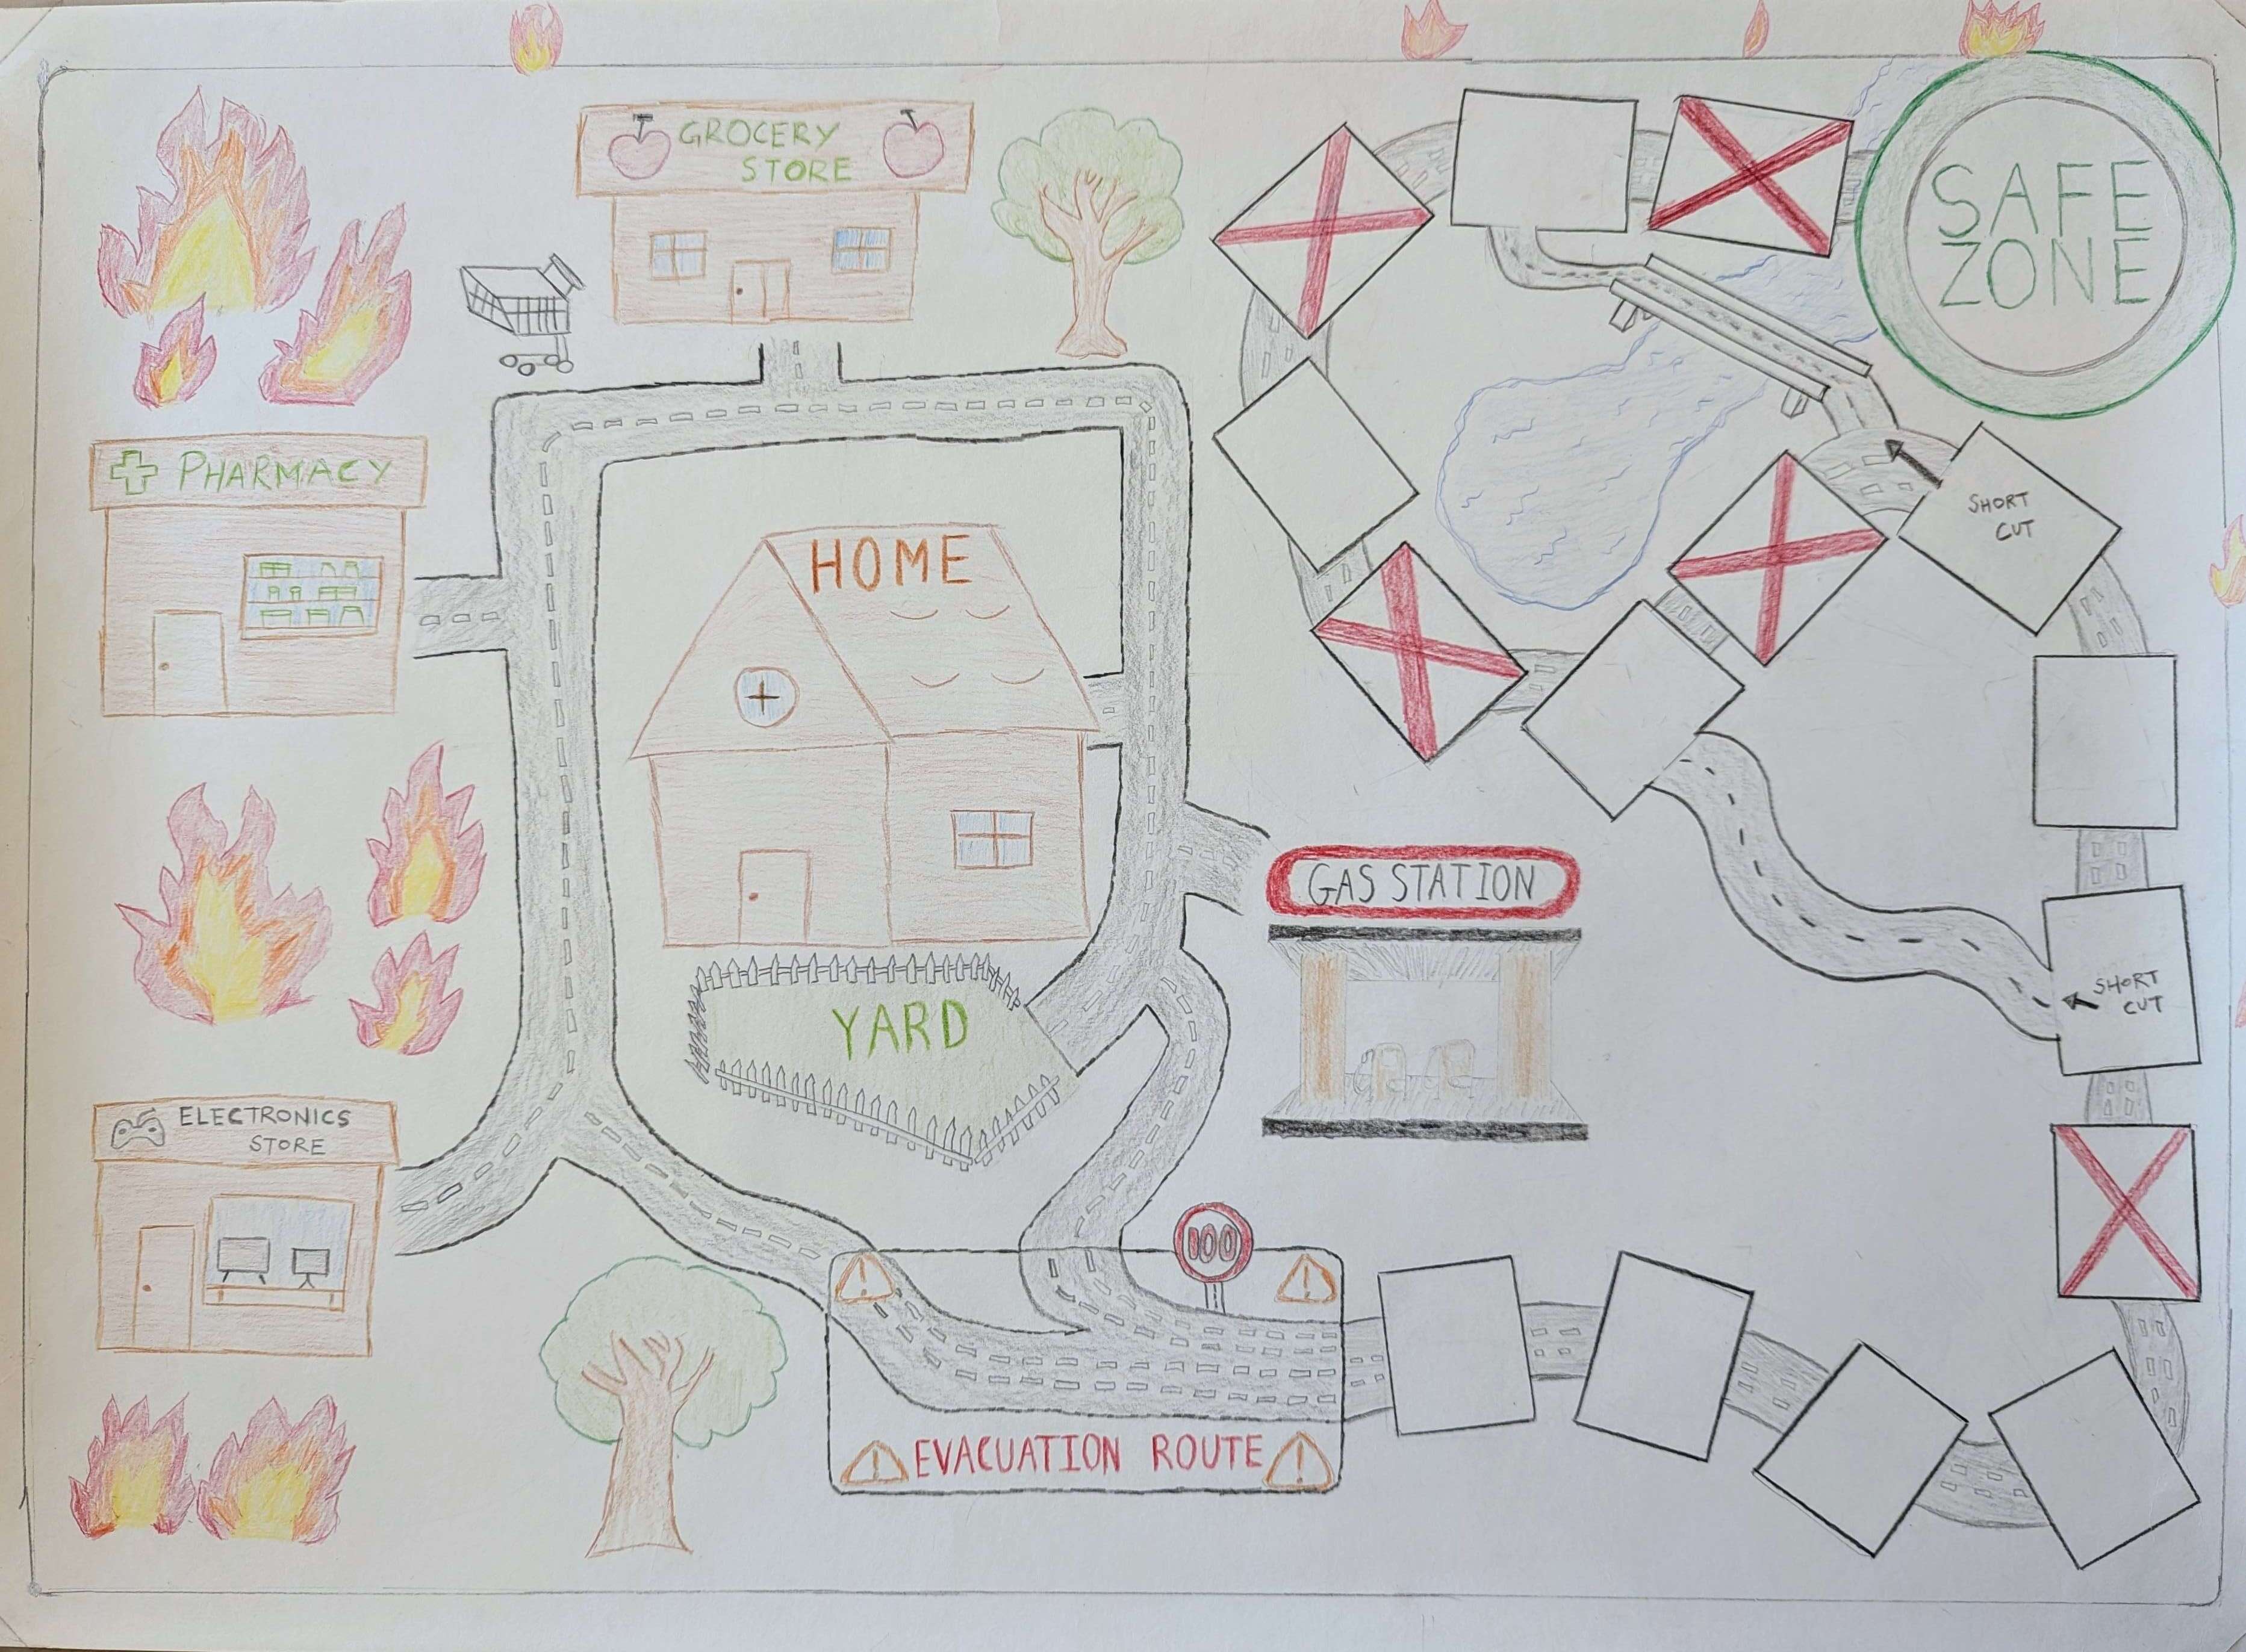 GROCERY
STORE
SAFE
ZONE
PHARMACY
SHORT
CUT
HOME
GAS STATION
SHORT
CUT
YARD
ELECTRONICS
STORE
100
!
!
!
EVACUATION ROUTE
!